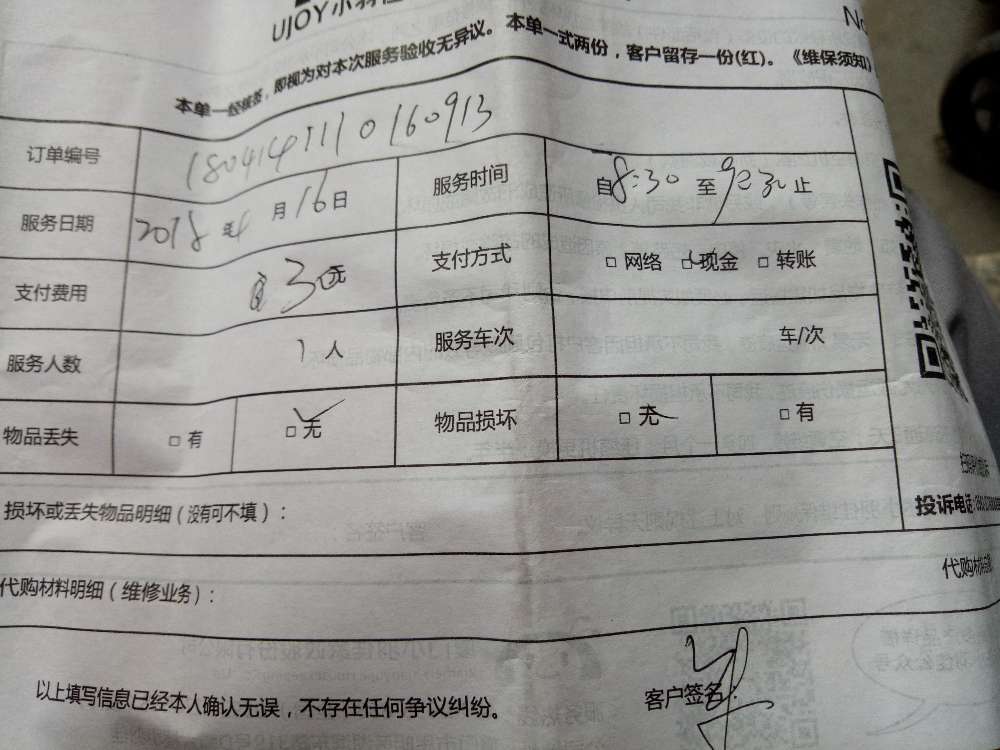 UJOY小羽佳
No
本单一经核签，即视为对本次服务验收无异议。本单一式两份，客户留存一份(红)。《维保须知》
订单编号 1804141110160913
服务日期 2018年4月16日 服务时间 自8:30至9:30止
支付费用 30元 支付方式 □网络 □现金 □转账
服务人数 1人 服务车次 车/次
物品丢失 □有 □无 物品损坏 □无 □有
损坏或丢失物品明细(没有可不填)：
投诉电话
代购材料明细(维修业务)：
代购材料
以上填写信息已经本人确认无误，不存在任何争议纠纷。
客户签名：